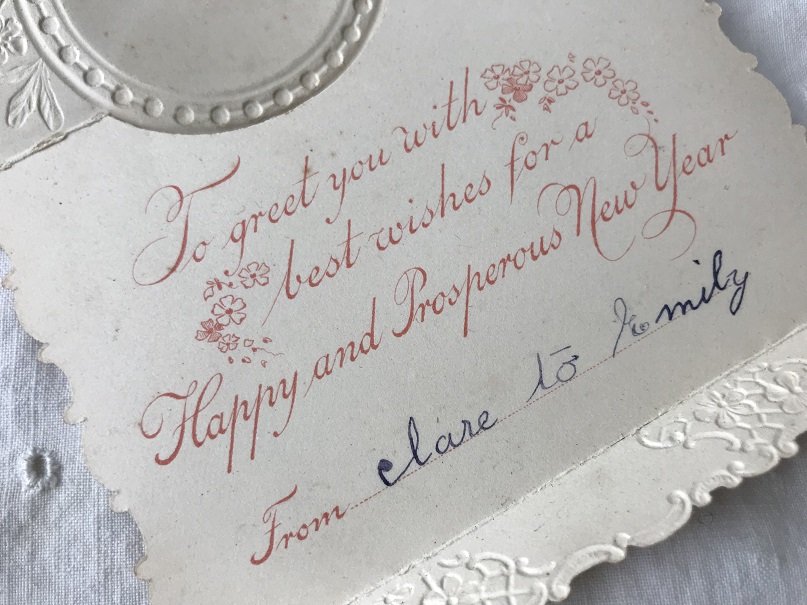 To greet you with
best wishes for a
Happy and Prosperous New Year
From Clare to Emily